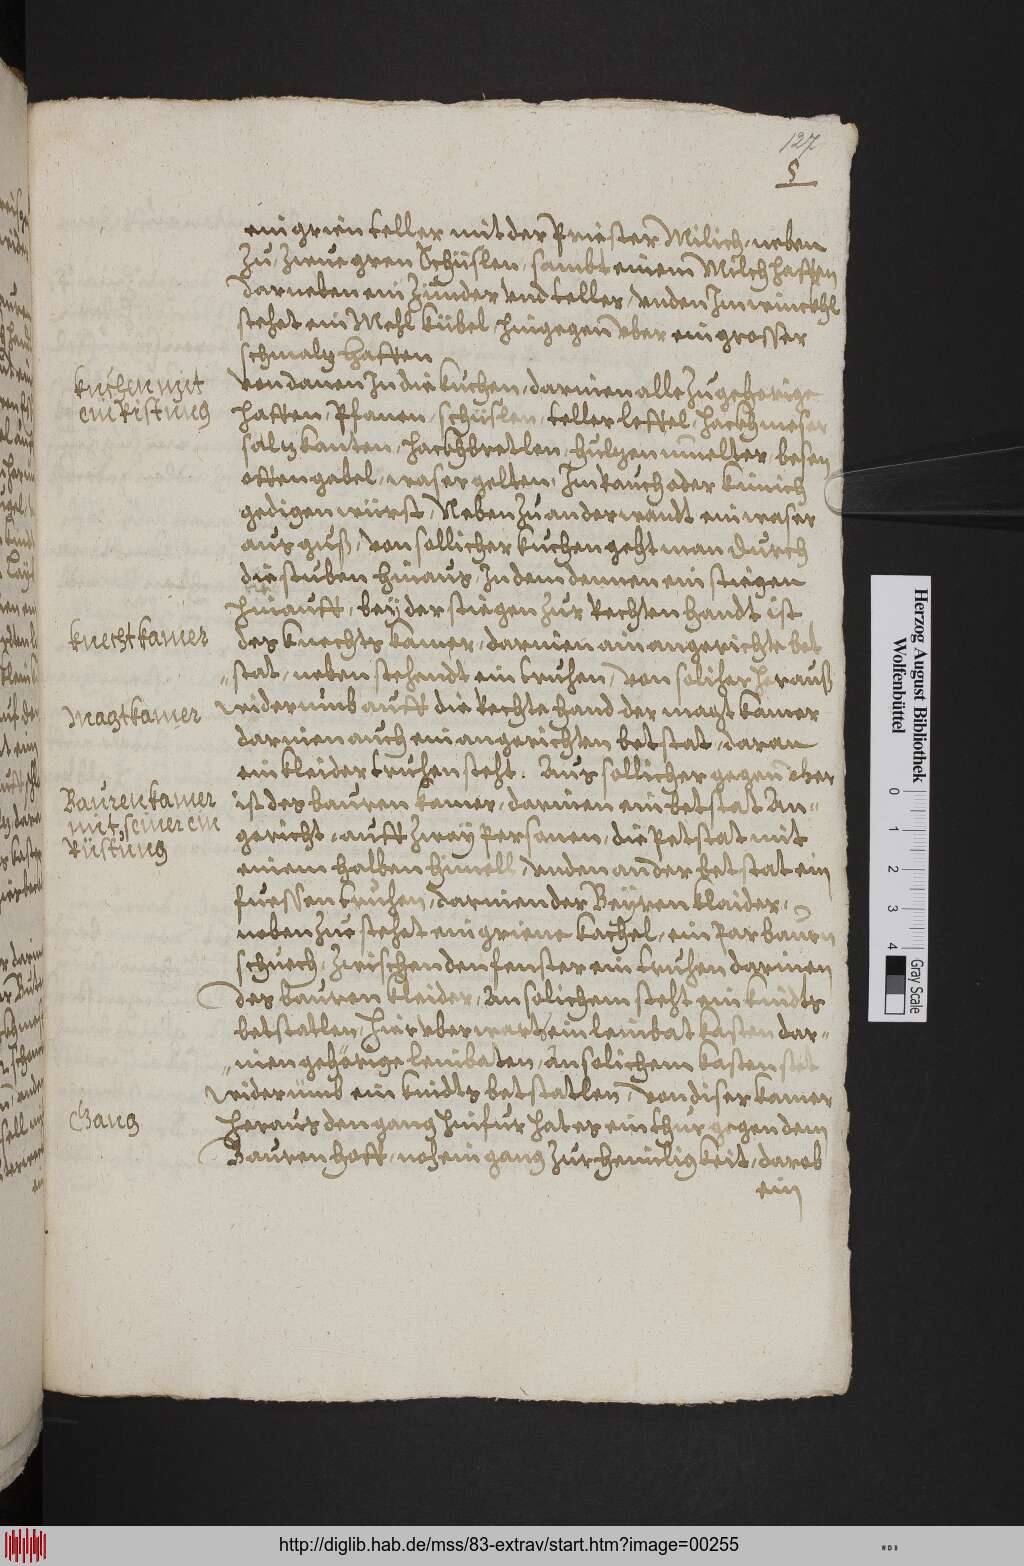 127
5
ein grien teller mit der Priester Milich, neben
zu, zwue gren Schüslen, sambt einem Milchhaffen
darneben ein Zünder vnd teller, vnden Im winckhl
stehet ein Mehl kübel, hingegen vber ein grosser
schmaltz haffen
kuchen mit
einristung
von danen In die kuchen, darinen alle zugehorige
haffen, Pfanen, schüslen, teller leffel, hackhmeser
saltz kanten, hackhbretlen, hültzen muelter, besen
offengabel, waser gelten, Im rauch oder kimich
gedigen würst, Neben zu ander wandt ein waser
ausguß, von sollicher kuchen geht man durch
die stuben hinaus, In dem dennen ein stiegen
hinauff, bey der stiegen zur rechten handt ist
knecht kamer
des knechts kamer, darinen ain angerichte bet
stat, neben stehendt ein truhen, von solicher herauß
Magtkamer
widerumb auff die rechte hand der magt kamer
darinen auch ein angerichten betstat, daran
ein kleider truhen steht. Aus sollicher gegen vber
Bauren kamer
mit seiner ein
Rüstung
ist des bauren kamer, darinen ein betstat An-
gericht, auff zwey Personen, die Petstat mit
einem halben himell, vnden an der betstat ein
fuessen truhen, darinen der Beyren klaider,
neben zue stehet ein griene kachel, ein Par baurn
schuech, zwischen den fenster ein truhen darinen
des bauren kleider, An solichem steht ein kindts
betstatlen, hier vber wart ein leinbat kasten dar-
inen gehörige leinbaten, an solichem kasten stet
widerumb ein kindts betstatlen, von diser kamer
Gang
heraus den gang hinfur hat es ein thur gegen dem
Bauren hoff, noh ein gang zur heimligkeit, darob
ein
Herzog August Bibliothek
Wolfenbüttel
0 1 2 3 4
Gray Scale
http://diglib.hab.de/mss/83-extrav/start.htm?image=00255